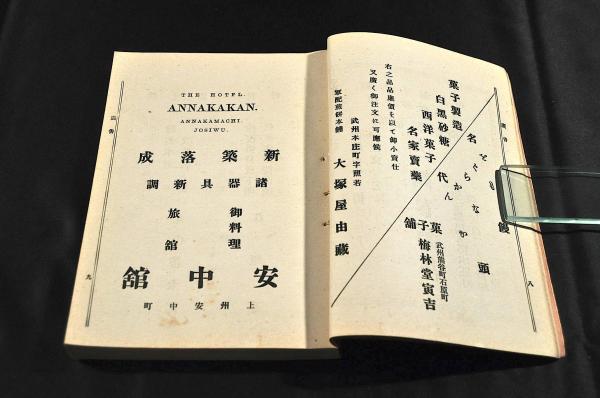 廣告
八
饅頭
名代
武州熊谷町石原町
菓子舖
梅林堂寅吉
菓子製造
白黒砂糖
西洋菓子
名家賣藥
右之品品廉價を以て御小賣仕
又廣く御注文に可應候
武州本庄町字照若
軍配煎餅本舖 大塚屋由藏
THE HOTEL.
ANNAKAKAN.
ANNAKAMACHI.
JOSIWU.
新築落成
諸器具新調
御料理
旅館
安中舘
上州安中町
廣告
九